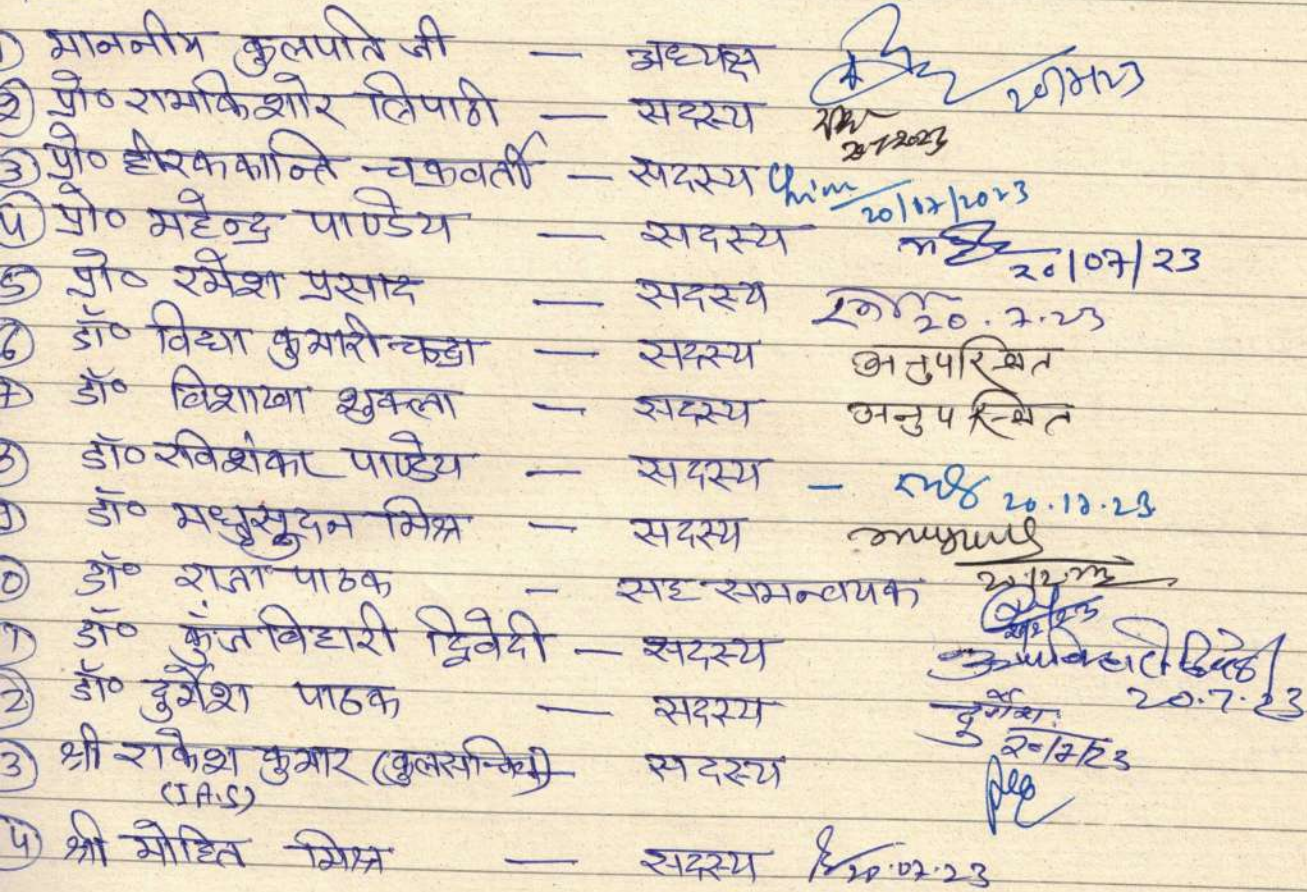 माननीय कुलपति जी — अध्यक्ष 20/7/23
② प्रो० रामकिशोर त्रिपाठी — सदस्य 20.7.2023
③ प्रो० हीरककान्ति चक्रवर्ती — सदस्य 20/07/2023
④ प्रो० महेन्द्र पाण्डेय — सदस्य 20/07/23
⑤ प्रो० रमेश प्रसाद — सदस्य 20.7.23
⑥ डॉ० विद्या कुमारी चन्द्रा — सदस्य अनुपस्थित
डॉ० विशाखा शुक्ला — सदस्य अनुपस्थित
डॉ० रविशंकर पाण्डेय — सदस्य — 20.12.23
डॉ० मधुसूदन मिश्र — सदस्य
डॉ० राजा पाठक — सह समन्वयक
डॉ० कुंजबिहारी द्विवेदी — सदस्य 20.7.23
डॉ० दुर्गेश पाठक — सदस्य दुर्गेश 20/7/23
श्री राकेश कुमार (कुलसचिव) — सदस्य
(I.A.S)
श्री मोहित मिश्र — सदस्य 20.07.23